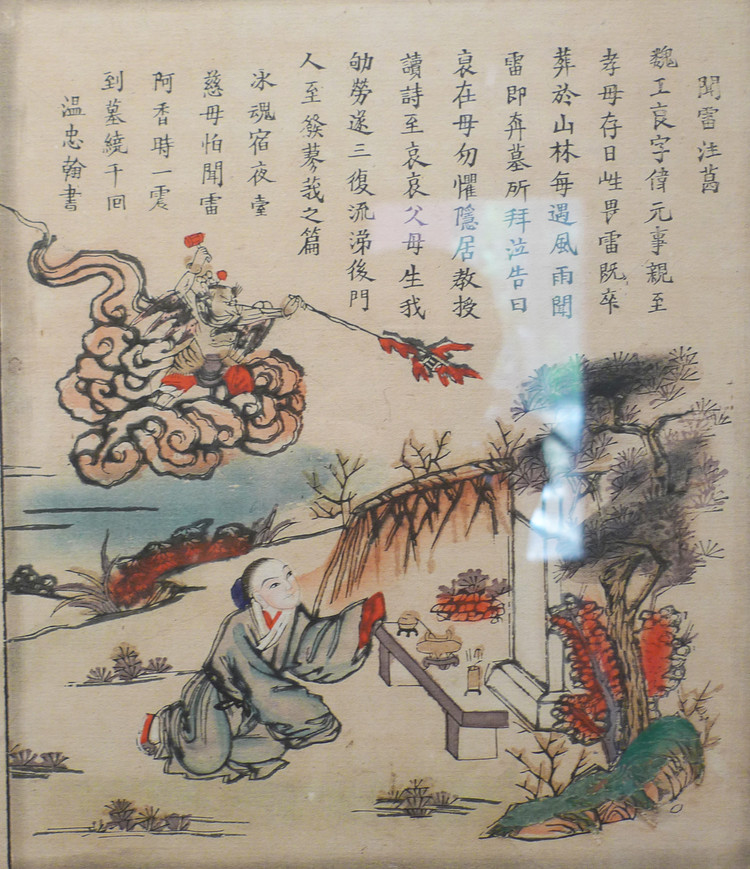 聞雷注葛
魏工哀字偉元事親至
孝母存日性畏雷既卒
葬於山林每遇風雨聞
雷即奔墓所拜泣告曰
哀在母勿懼隱居教授
讀詩至哀哀父母生我
劬勞遂三復流涕後門
人至發蓼莪之篇
泳魂宿夜臺
慈母怕聞雷
阿香時一震
到墓繞千回
溫忠翰書